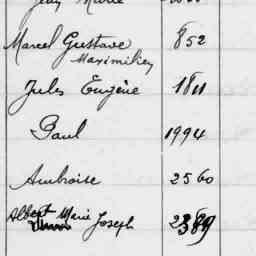 Jean Marie
Marcel Gustave 852
Maximilien
Jules Eugène 1811
Paul 1994
Ambroise 2560
Albert Marie Joseph 2389